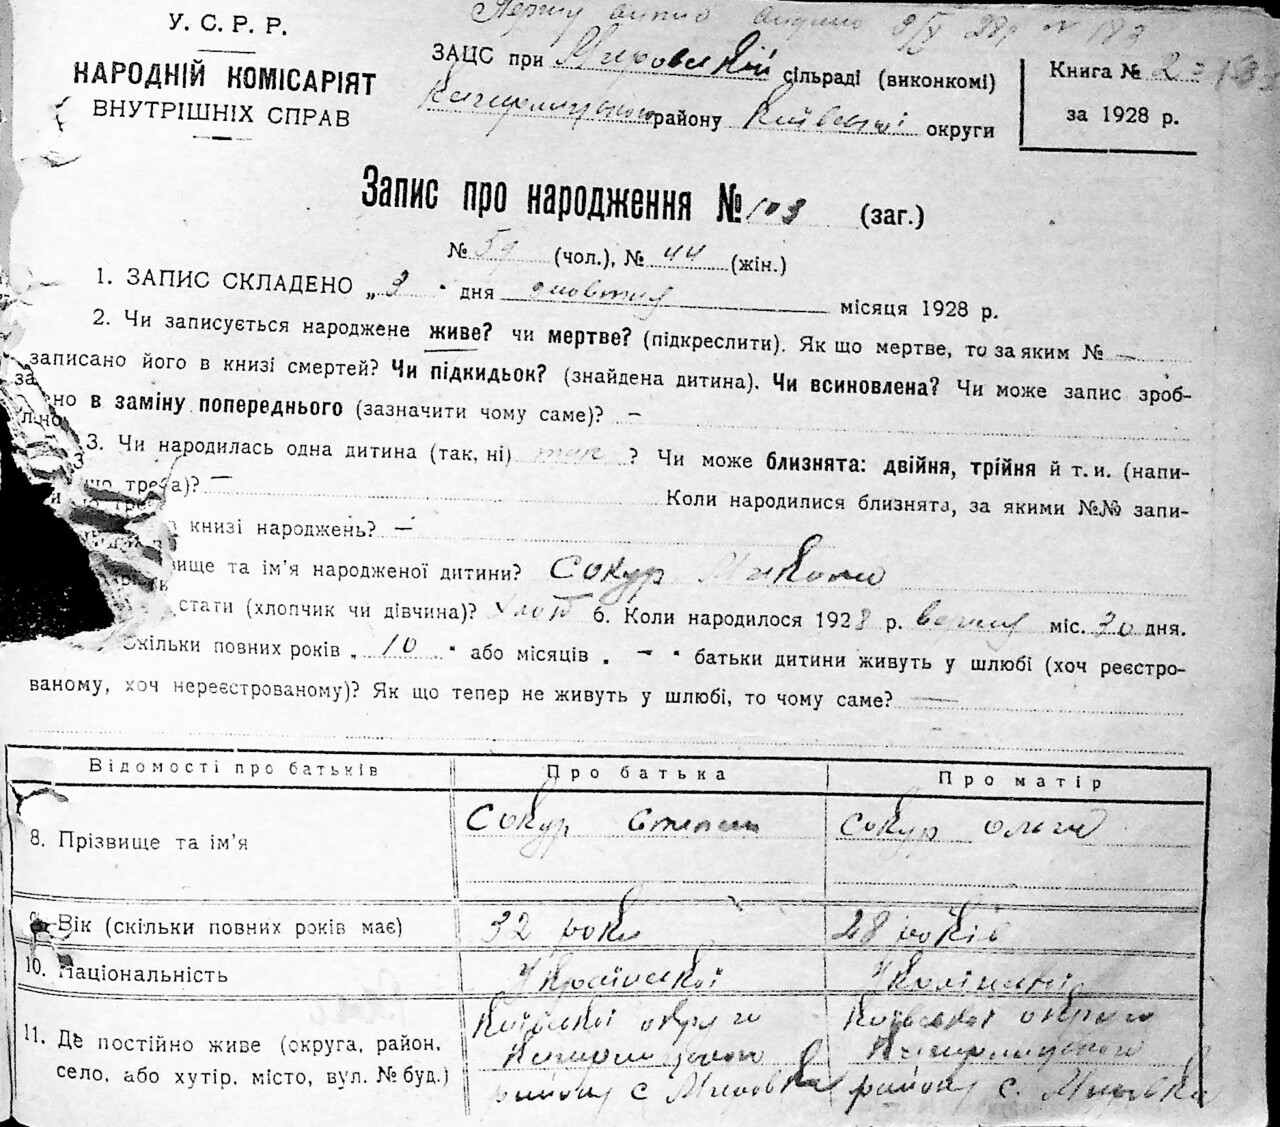 У. С. Р. Р.
НАРОДНІЙ КОМІСАРІЯТ
ВНУТРІШНІХ СПРАВ
ЗАЦС при Мировській сільраді (виконкомі)
Кагарлицького району Київської округи
Книга № 2
за 1928 р.
Запис про народження № 103 (заг.)
№ 59 (чол.), № 44 (жін.)
1. ЗАПИС СКЛАДЕНО „ 3 " дня жовтня місяця 1928 р.
2. Чи записується народжене живе? чи мертве? (підкреслити). Як що мертве, то за яким № —
записано його в книзі смертей? Чи підкидьок? (знайдена дитина). Чи всиновлена? Чи може запис зроб-
но в заміну попереднього (зазначити чому саме)? —
3. Чи народилась одна дитина (так, ні) так ? Чи може близнята: двійня, трійня й т. и. (напи-
що треба)? — Коли народилися близнята, за якими №№ запи-
в книзі народжень? —
вище та ім'я народженої дитини? Сокур Микола
стати (хлопчик чи дівчина)? хлоп 6. Коли народилося 1928 р. вересня міс. 30 дня.
скільки повних років „ 10 " або місяців „ — " батьки дитини живуть у шлюбі (хоч реєстро-
ваному, хоч нереєстрованому)? Як що тепер не живуть у шлюбі, то чому саме? —
Відомості про батьків Про батька Про матір
8. Прізвище та ім'я Сокур Степан Сокур Ольга
9. Вік (скільки повних років має) 32 роки 28 років
10. Національність Української
11. Де постійно живе (округа, район, село, або хутір, місто, вул. № буд.)
Київської округи Київської округи
Кагарлицького Кагарлицького
району с. Мировка району с. Мировка